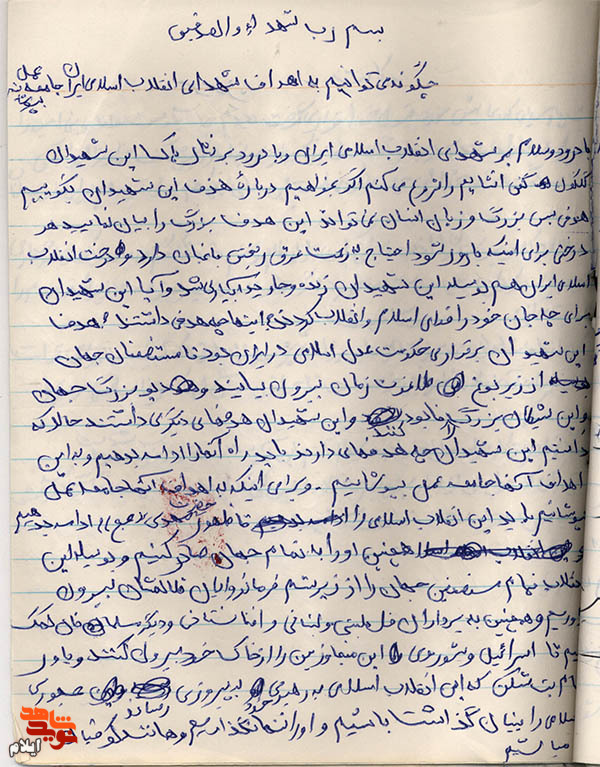 بسم رب شهداء والصدیقین
چگونه می توانیم به اهداف شهدای انقلاب اسلامی ایران جامعه عمل بپوشانیم
با درود و سلام بر شهدای انقلاب اسلامی ایران و با درود بر تن پاک این شهیدان
گلگون کفن انشایم را شروع می کنم اگر بخواهیم دربارهٔ هدف این شهیدان بگوییم
هدفی بس بزرگ و زبان انسان نمی تواند این هدف بزرگ را بیان نماید هر
درختی برای اینکه بارور شود احتیاج به زحمت عرق ریختن باغبان دارد و درخت انقلاب
اسلامی ایران هم بوسیله این شهیدان زنده و جاوید آبیاری شد و آیا این شهیدان
برای چه جان خود را فدای اسلام و انقلاب کردند و اینها چه هدفی داشتند؟ هدف
این شهیدان برقراری حکومت عدل اسلامی در ایران بود تا مستضعفان جهان
از زیر یوغ طاغوت زمان بیرون بیایند و دیو بزرگ جهان
و این شیطان بزرگ نابود کنند و این شهیدان هدفهای دیگری داشتند حالا که
دانستیم این شهیدان چه هدفهای دارند باید راه آنها را ادامه بدهیم و به این
اهداف آنها جامعه عمل بپوشانیم - و برای اینکه به اهداف آنها جامعه عمل
بپوشانیم باید این انقلاب اسلامی را تا ظهور حضرت مهدی (عج) ادامه بدهیم
و همچنین او را به تمام جهان صادر کنیم و بوسیله این
انقلاب تمام مستضعفین جهان را از زیر ستم فرمانروایان ظالمشان بیرون
آوریم و همچنین به برادران فلسطینی و لبنانی و افغانستانی و دیگر مسلمانان کمک
کنیم تا اسرائیل و شوروی این متجاوزین را از خاک خود بیرون کنند و باور
بت شکن که این انقلاب اسلامی به رهبری خود به پیروزی رساند جمهوری
اسلامی را بنیان گذاشت باشیم و او را تنها نگذاریم و مانند کوفیان
نباشیم
شاهد
نوید
ایلام